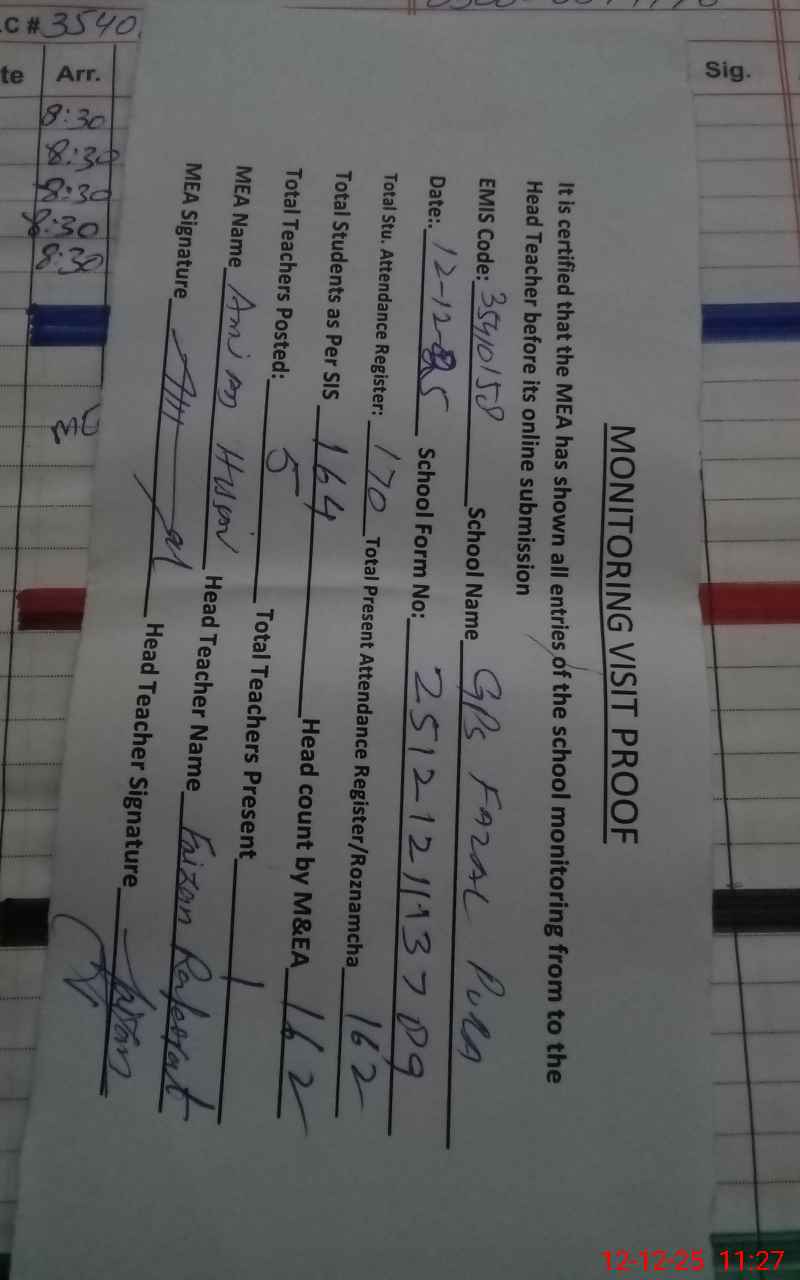 MONITORING VISIT PROOF
It is certified that the MEA has shown all entries of the school monitoring from to the
Head Teacher before its online submission
EMIS Code: 35410158 School Name GPS FAZAL PURA
Date:. 12-12-25 School Form No:
Total Stu. Attendance Register: 170 Total Present Attendance Register/Roznamcha 162
Total Students as Per SIS 164 Head count by M&EA 162
Total Teachers Posted: 5 Total Teachers Present 1
MEA Name Head Teacher Name Faizan
MEA Signature Head Teacher Signature
C # 3540
te Arr. Sig.
8:30
8:30
8:30
8:30
8:30
12-12-25 11:27